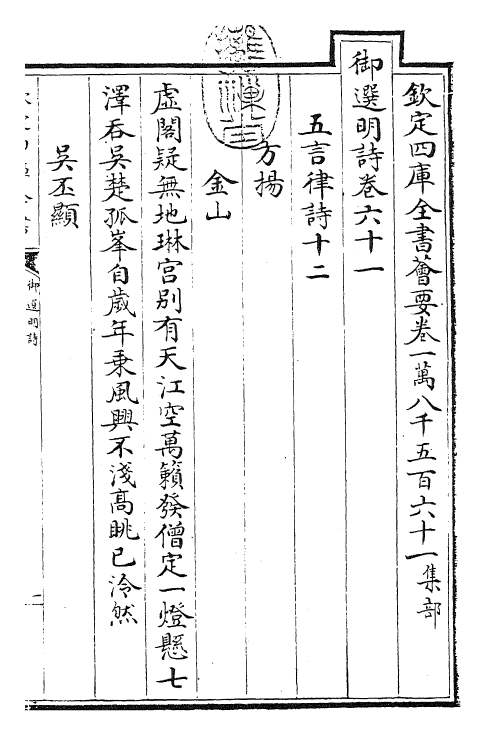 欽定四庫全書薈要卷一萬八千五百六十一集部
御選明詩卷六十一
五言律詩十二
方揚
金山
虛閣疑無地琳宮別有天江空萬籟發僧定一燈懸七
澤吞吳楚孤峯自歲年乘風興不淺高眺已泠然
吳丕顯
御選明詩